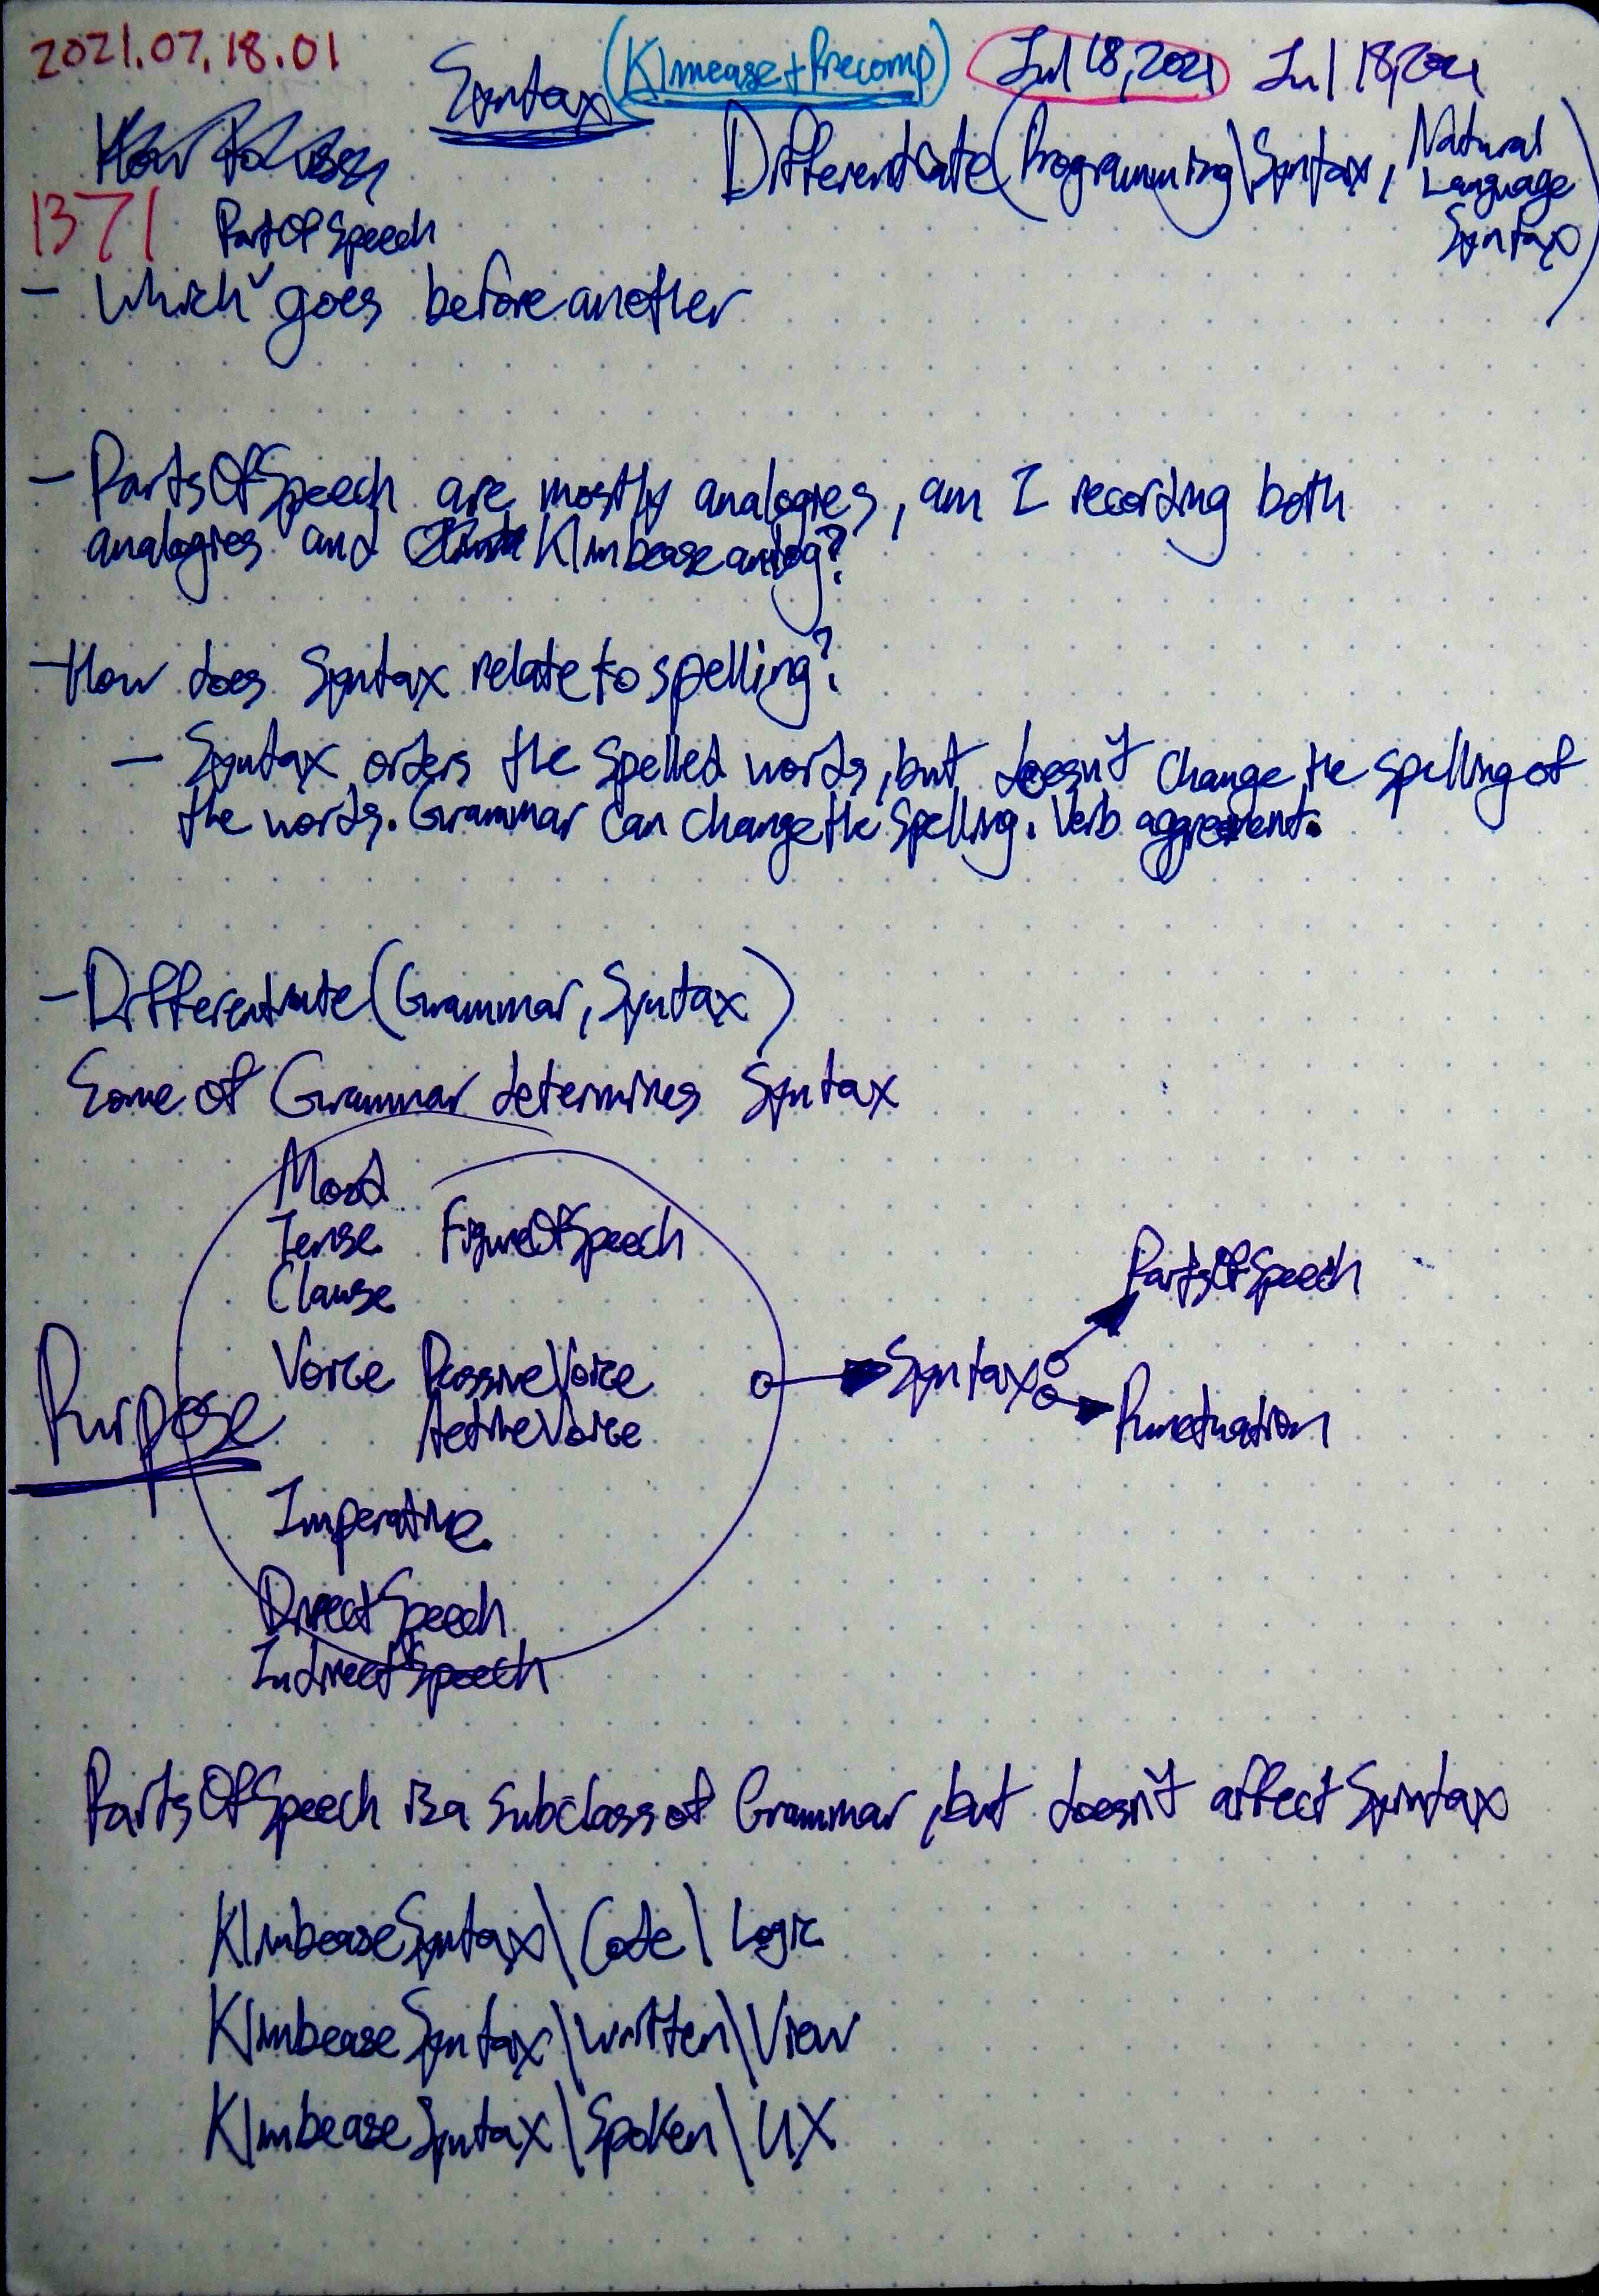 2021.07.18.01
Syntax (Klmease+Precomp) Jul 18,2021 Jul 18,2021
How to use
Differentiate(Programming\Syntax, Natural Language Syntax)
1371
PartOfSpeech
- Which goes before another
- PartsOfSpeech are mostly analogies, am I recording both
analogies and Klmbease analog?
- How does Syntax relate to spelling?
- Syntax orders the spelled words, but doesn't change the spelling of
the words. Grammar can change the spelling. Verb aggrement.
- Differentiate(Grammar, Syntax)
Some of Grammar determines Syntax
Mood
Tense FigureOfSpeech
Clause
Voice PassiveVoice
ActiveVoice
Purpose
Imperative
DirectSpeech
IndirectSpeech
Syntax
PartsOfSpeech
Punctuation
PartsOfSpeech is a subclass of Grammar, but doesn't affect Syntax
KlmbeaseSyntax\Code\Logic
KlmbeaseSyntax\Written\View
KlmbeaseSyntax\Spoken\UX